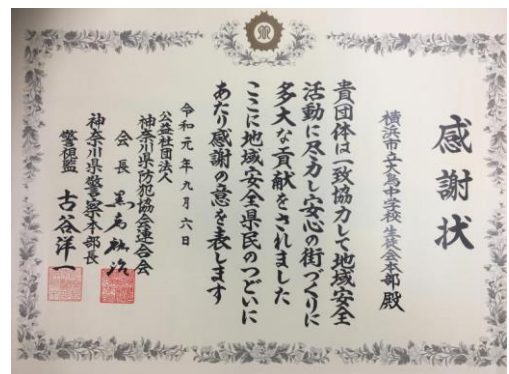 感謝状
横浜市立大鳥中学校 生徒会本部 殿
貴団体は一致協力して地域安全
活動に尽力し安心の街づくりに
多大な貢献をされました
ここに地域安全県民のつどいに
あたり感謝の意を表します
令和元年九月六日
公益社団法人
神奈川県防犯協会連合会
会長
神奈川県警察本部長
警視監 古谷洋一